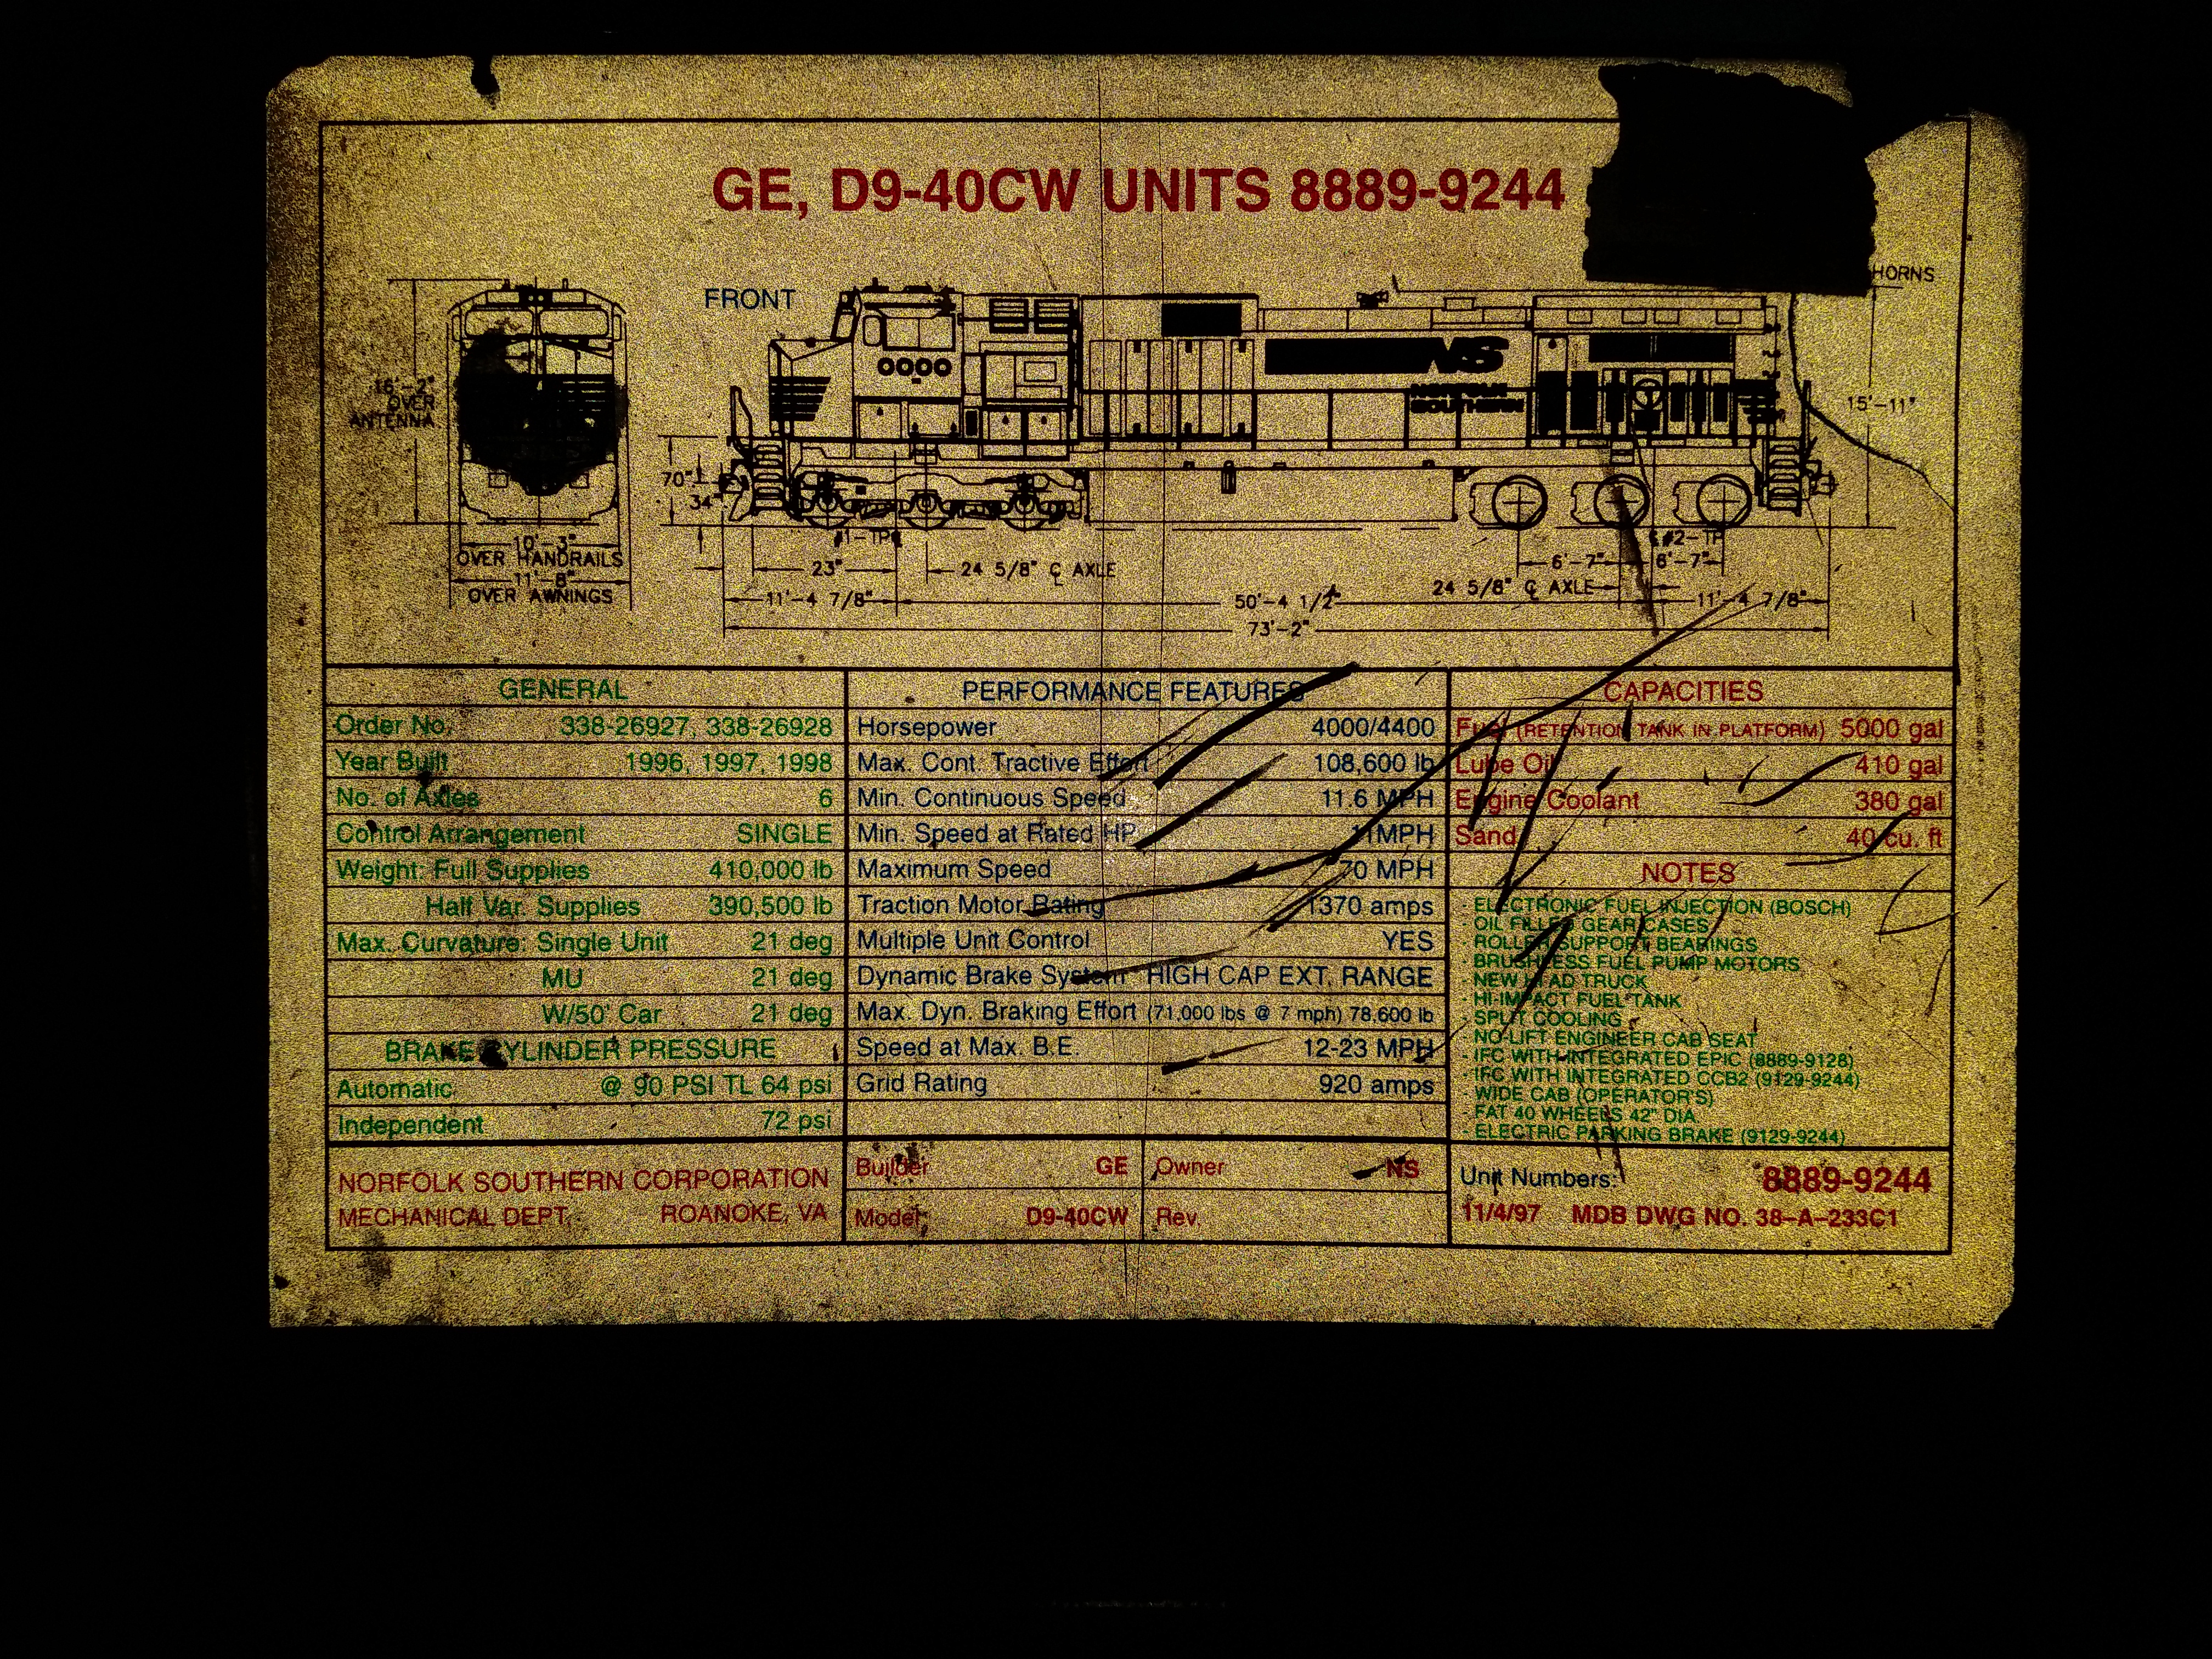 GE, D9-40CW UNITS 8889-9244
HORNS
FRONT
NS
SOUTHERN
16'-2"
OVER
ANTENNA
15'-11"
70"
34"
10'-3"
OVER HANDRAILS
11'-8"
OVER AWNINGS
#1-TP
#2-TP
23"
24 5/8" ℄ AXLE
6'-7"
6'-7"
24 5/8" ℄ AXLE
11'-4 7/8"
50'-4 1/2"
11'-4 7/8"
73'-2"
GENERAL
Order No. 338-26927, 338-26928
Year Built 1996, 1997, 1998
No. of Axles 6
Control Arrangement SINGLE
Weight: Full Supplies 410,000 lb
Half Var. Supplies 390,500 lb
Max. Curvature: Single Unit 21 deg
MU 21 deg
W/50' Car 21 deg
BRAKE CYLINDER PRESSURE
Automatic @ 90 PSI TL 64 psi
Independent 72 psi
PERFORMANCE FEATURES
Horsepower 4000/4400
Max. Cont. Tractive Effort 108,600 lb
Min. Continuous Speed 11.6 MPH
Min. Speed at Rated HP 11MPH
Maximum Speed 70 MPH
Traction Motor Rating 1370 amps
Multiple Unit Control YES
Dynamic Brake System HIGH CAP EXT. RANGE
Max. Dyn. Braking Effort (71,000 lbs @ 7 mph) 78,600 lb
Speed at Max. B.E. 12-23 MPH
Grid Rating 920 amps
CAPACITIES
Fuel (RETENTION TANK IN PLATFORM) 5000 gal
Lube Oil 410 gal
Engine Coolant 380 gal
Sand 40 cu. ft
NOTES
- ELECTRONIC FUEL INJECTION (BOSCH)
- OIL FILLED GEAR CASES
- ROLLER SUPPORT BEARINGS
- BRUSHLESS FUEL PUMP MOTORS
- NEW HI AD TRUCK
- HI-IMPACT FUEL TANK
- SPLIT COOLING
- NO-LIFT ENGINEER CAB SEAT
- IFC WITH INTEGRATED EPIC (8889-9128)
- IFC WITH INTEGRATED CCB2 (9129-9244)
- WIDE CAB (OPERATOR'S)
- FAT 40 WHEELS 42" DIA.
- ELECTRIC PARKING BRAKE (9129-9244)
NORFOLK SOUTHERN CORPORATION
MECHANICAL DEPT. ROANOKE, VA
Builder GE
Owner NS
Model D9-40CW
Rev.
Unit Numbers: 8889-9244
11/4/97 MDB DWG NO. 38-A-233C1